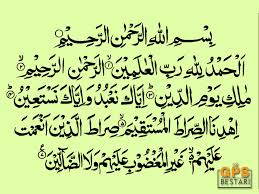 بِسْمِ اللهِ الرَّحْمٰنِ الرَّحِيْمِ ۝١
اَلْحَمْدُ لِلّٰهِ رَبِّ الْعٰلَمِيْنَ ۝٢ الرَّحْمٰنِ الرَّحِيْمِ ۝٣
مٰلِكِ يَوْمِ الدِّيْنِ ۝٤ اِيَّاكَ نَعْبُدُ وَاِيَّاكَ نَسْتَعِيْنُ ۝٥
اِهْدِنَا الصِّرَاطَ الْمُسْتَقِيْمَ ۝٦ صِرَاطَ الَّذِيْنَ اَنْعَمْتَ
عَلَيْهِمْ ەۙ غَيْرِ الْمَغْضُوْبِ عَلَيْهِمْ وَلَا الضَّاۤلِّيْنَ ۝٧
GPS
BESTARI